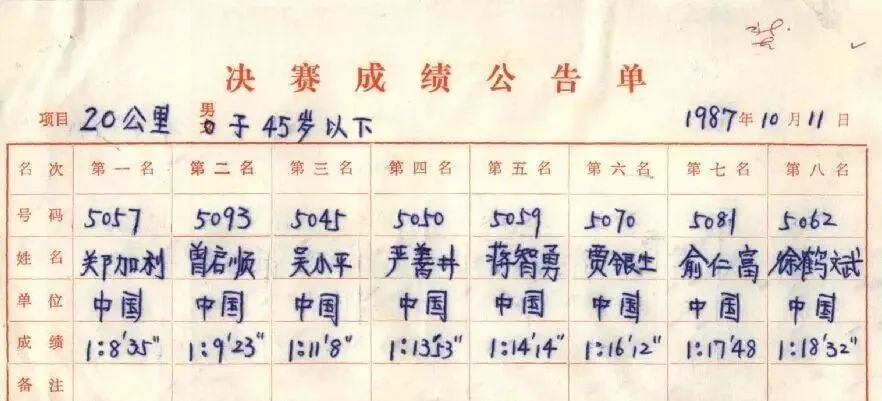 决赛成绩公告单
项目 20公里 男子 45岁以下 1987年10月11日
名次 第一名 第二名 第三名 第四名 第五名 第六名 第七名 第八名
号码 5057 5093 5045 5050 5059 5070 5081 5062
姓名 郑加利 曾启顺 吴小平 严善井 蒋智勇 贾银生 俞仁富 徐鹤斌
单位 中国 中国 中国 中国 中国 中国 中国 中国
成绩 1:8'35" 1:9'23" 1:11'8" 1:13'53" 1:14'14" 1:16'12" 1:17'48 1:18'32"
备注